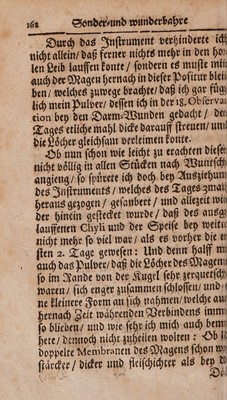 162 Sonder- und wunderbahre
Durch das Instrument verhinderte ich
nicht allein/ daß ferner nichts mehr in den ho-
len Leib lauffen konte/ sondern es muste mir
auch der Magen hernach in dieser Positur blei-
ben/ welches zuwege brachte/ daß ich gar füg-
lich mein Pulver/ dessen ich in der 18. Observa-
tion bey den Darm-Wunden gedacht/ des
Tages etliche mahl dicke darauff streuen/ und
die Löcher gleichsam verleimen konte.
Ob nun schon wie leicht zu erachten dieses
nicht völlig in allen Stücken nach Wuntsch
angieng/ so spürete ich doch bey Ausziehung
des Instruments/ welches des Tages 2mal
heraus gezogen/ gesaubert/ und allezeit wie-
der hinein gesteckt wurde/ daß des ausge-
lauffenen Chyli und der Speise bey weiten
nicht mehr so viel war/ als es vorher die er-
sten 2. Tage gewesen: Und denn half mir
auch das Pulver/ daß die Löcher des Magens
so im Rande von der Kugel sehr zerquetscht
waren/ sich enger zusammen schlossen/ und ei-
ne kleinere Form an sich nahmen/ welche auch
hernach Zeit währenden Verbindens immer
so blieben/ und wie sehr ich mich auch bemü-
hete/ dennoch nicht zuheilen wolten: Ob
doppelte Membranen des Magens schon
stärcker/ dicker und fleischichter als bey